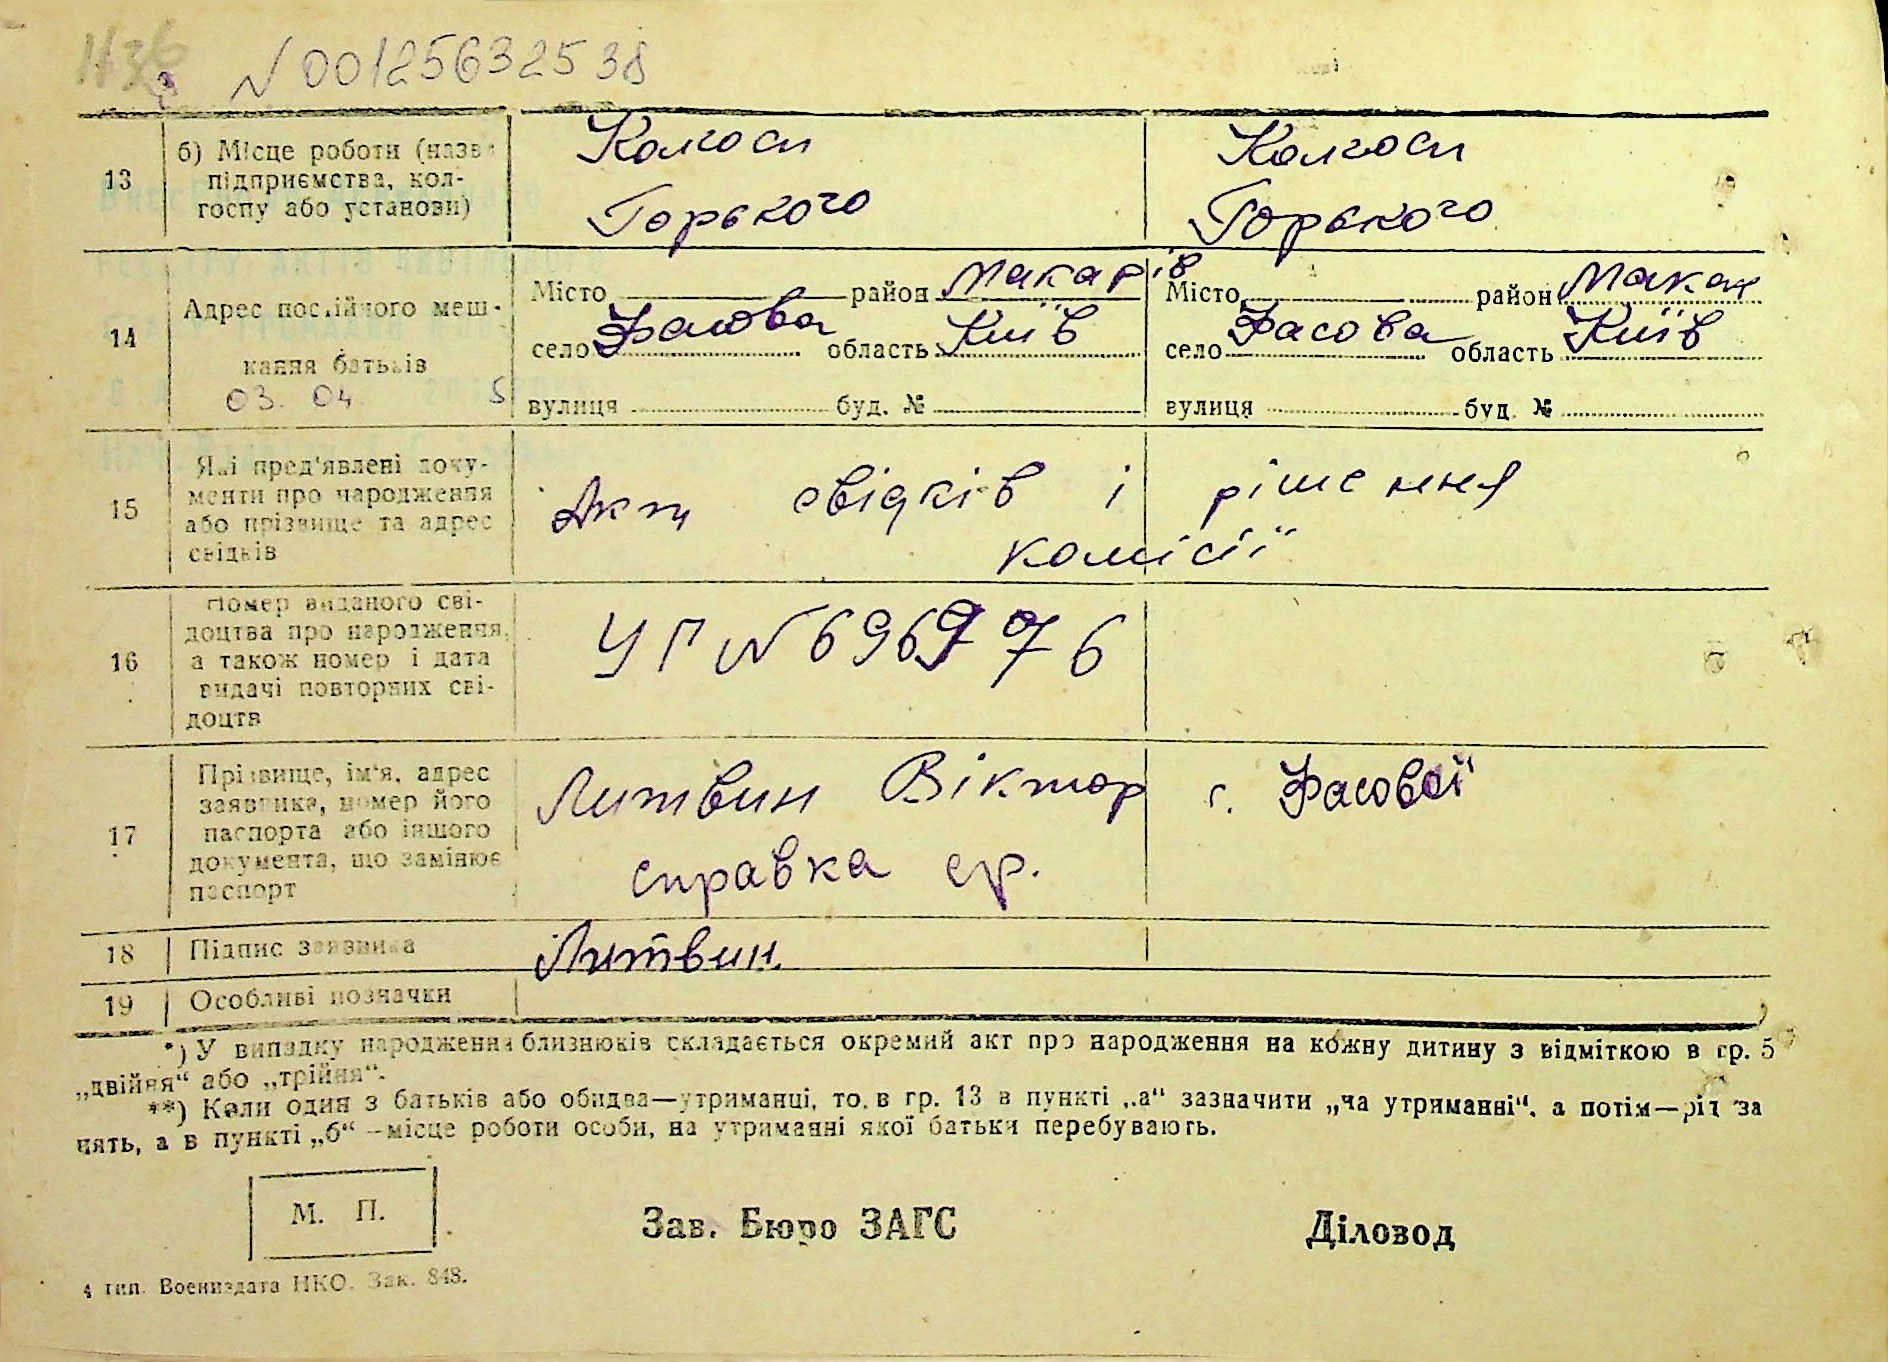 N 00125632538
13
б) Місце роботи (назва
підприємства, кол-
госпу або установи)
Колгосп
Горького
Колгосп
Горького
14
Адрес постійного меш-
кання батьків
03. 04
Місто район Макарів
село Фасова область Київ
вулиця буд. №
Місто район Макар
село Фасова область Київ
вулиця буд. №
15
Які пред'явлені доку-
менти про народження
або прізвище та адрес
свідків
Акт свідків і рішення
комісії
16
Номер виданого сві-
доцтва про народження,
а також номер і дата
видачі повторних сві-
доцтв
УГ N 696976
17
Прізвище, ім'я, адрес
заявника, номер його
паспорта або іншого
документа, що замінює
паспорт
Литвин Віктор с. Фасової
справка ср.
18 Підпис заявника Литвин.
19 Особливі позначки
*) У випадку народження близнюків складається окремий акт про народження на кожну дитину з відміткою в гр. 5
„двійня“ або „трійня“.
**) Коли один з батьків або обидва—утриманці, то в гр. 13 в пункті „а“ зазначити „на утриманні“, а потім—рід за
нять, а в пункті „б“ —місце роботи особи, на утриманні якої батьки перебувають.
М. П.
Зав. Бюро ЗАГС
Діловод
4 тип. Воениздата НКО. Зак. 848.